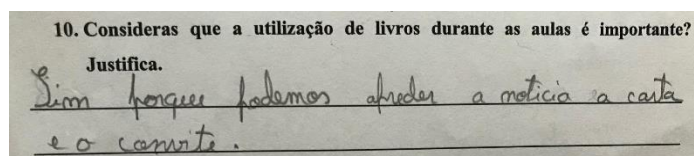 10. Consideras que a utilização de livros durante as aulas é importante?
Justifica.
Sim porque podemos afreder a noticia a carta
e o convite.